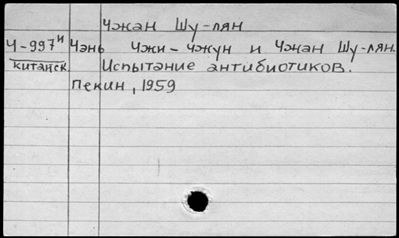 Чжан Шу-лян
Ч-997и Чэнь Чжи-чжун и Чжан Шу-лян.
китайск. Испытание антибиотиков.
Пекин, 1959